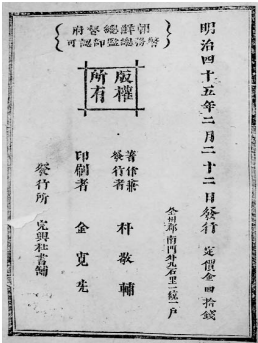 朝鮮總督府
警務總監部認可
版權
所有
明治四十五年二月二十二日發行 定價金四拾錢
全州郡南門外九石里一統一戶
著作兼
發行者 朴敬輔
印刷者 金
發行所 完興社書鋪